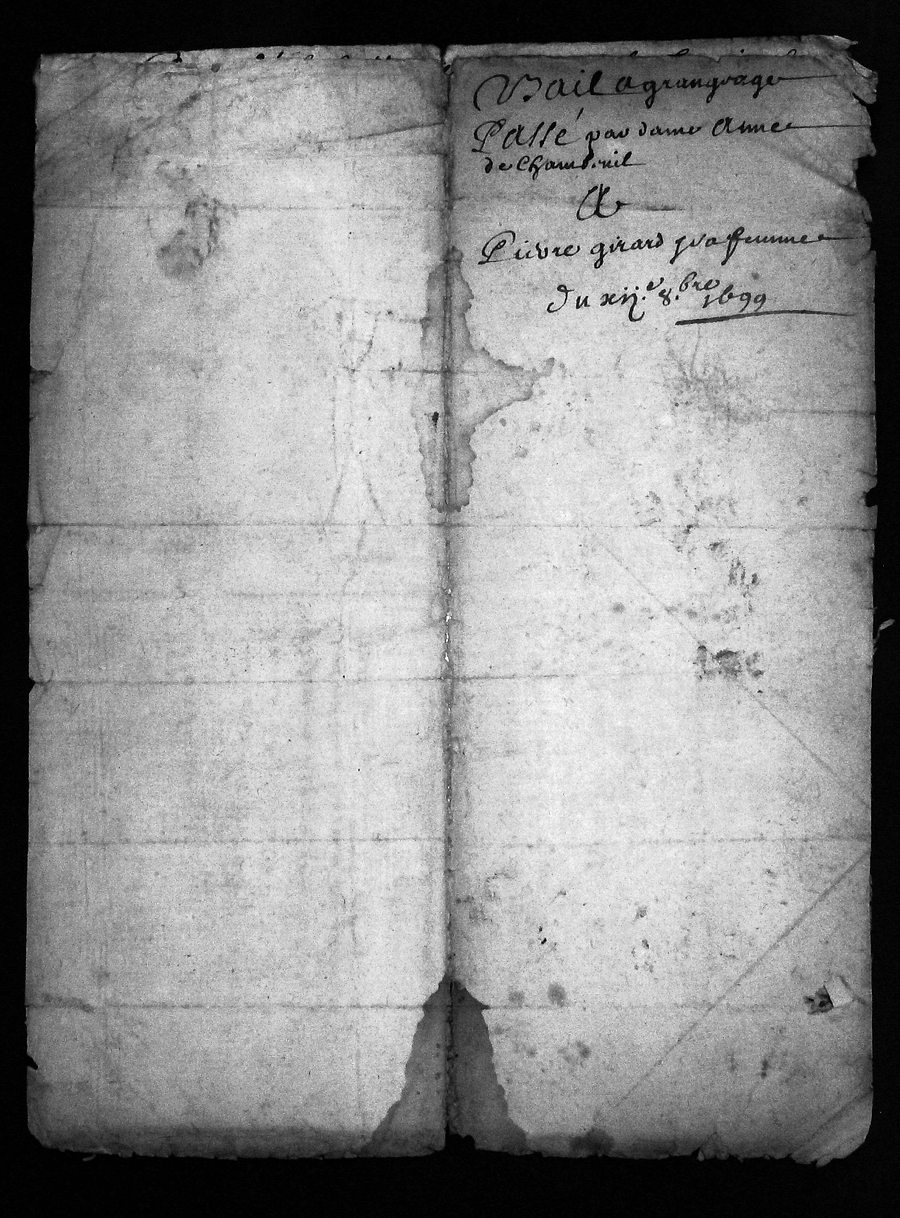 Bail a grangeage
Passé par dame Anne
de Chambeuil
A
Pierre girard sa femme
du xij.e 8.bre 1699